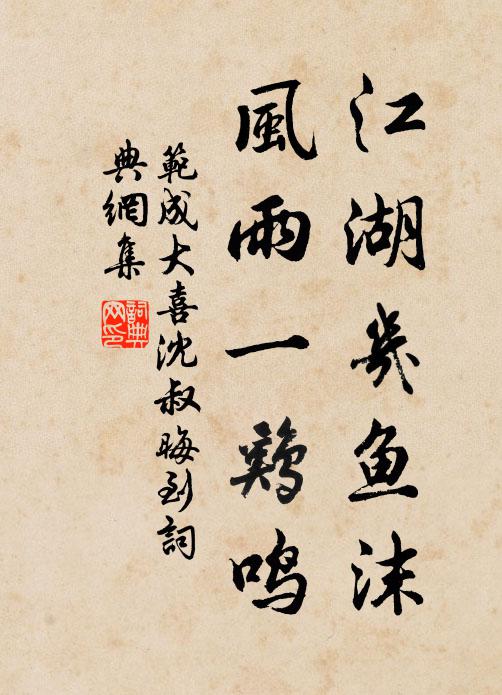 江湖幾魚沫
風雨一鷄鳴
範成大喜沈叔晦到詞
典網集
詞典
网印